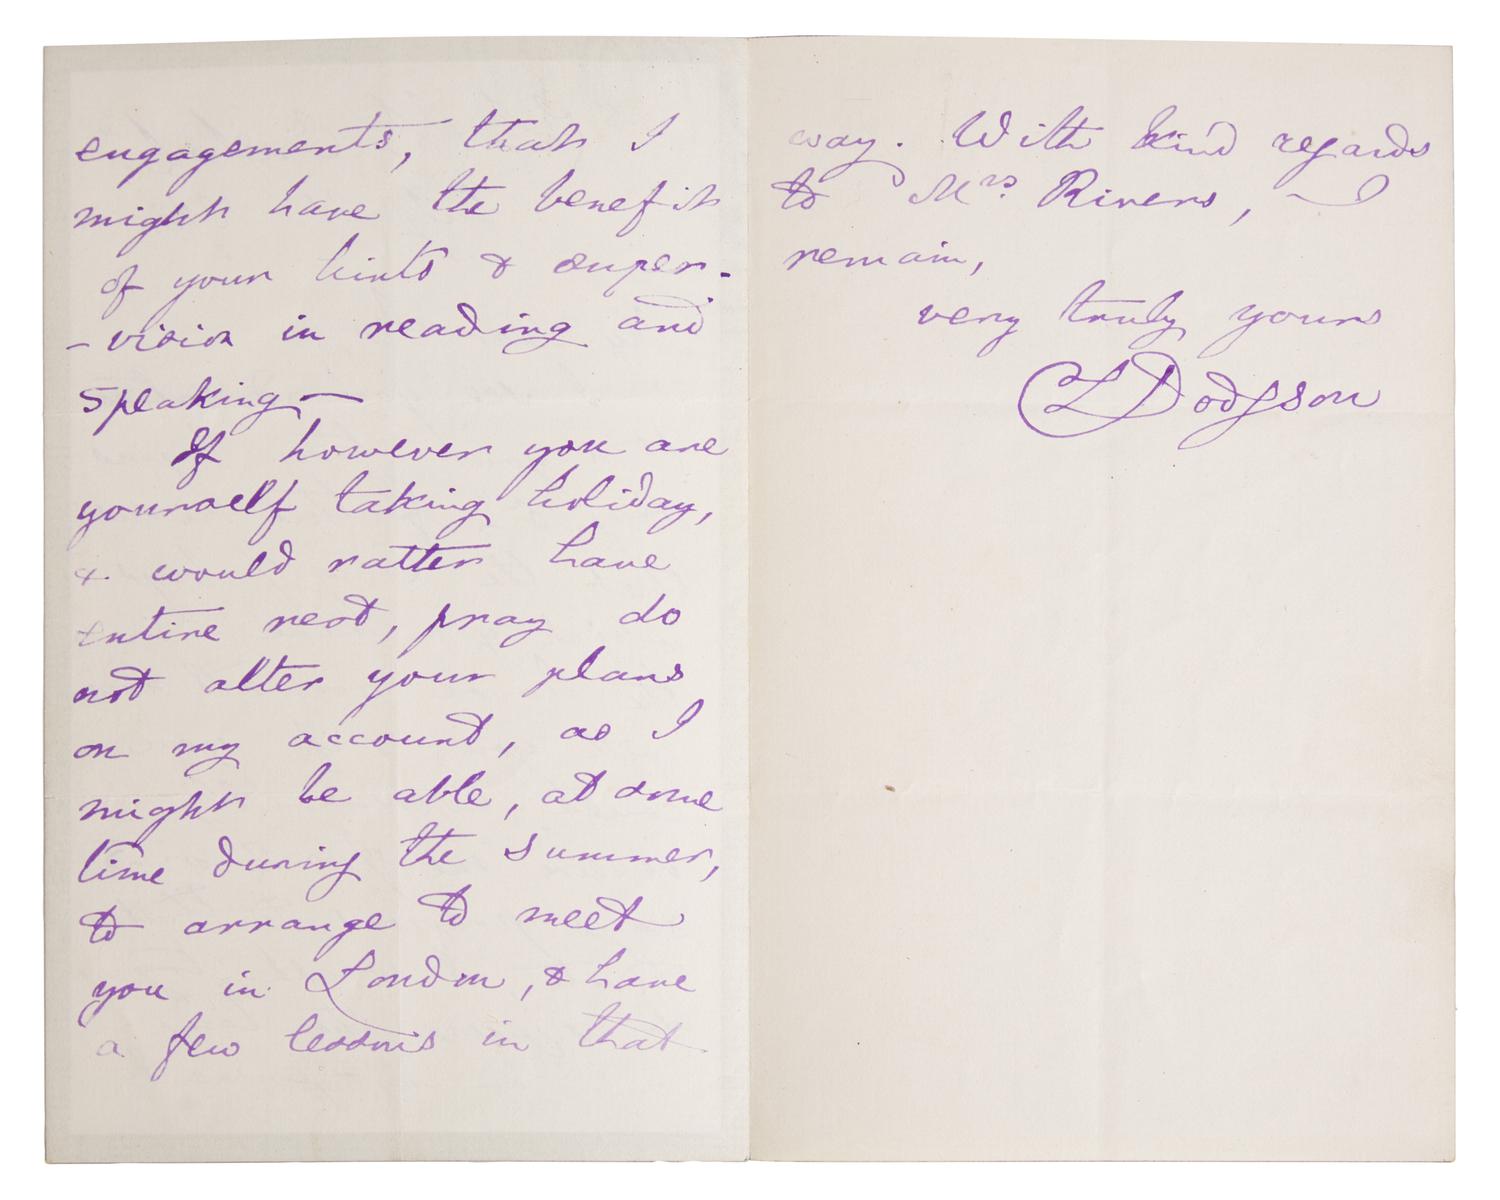 engagements, that I
might have the benefit
of your hints & super-
-vision in reading and
speaking —
If however you are
yourself taking holiday,
& would rather have
entire rest, pray do
not alter your plans
on my account, as I
might be able, at some
time during the summer,
to arrange to meet
you in London, & have
a few lessons in that
way. With kind regards
to Mrs. Rivers, I
remain,
very truly yours
C L Dodgson